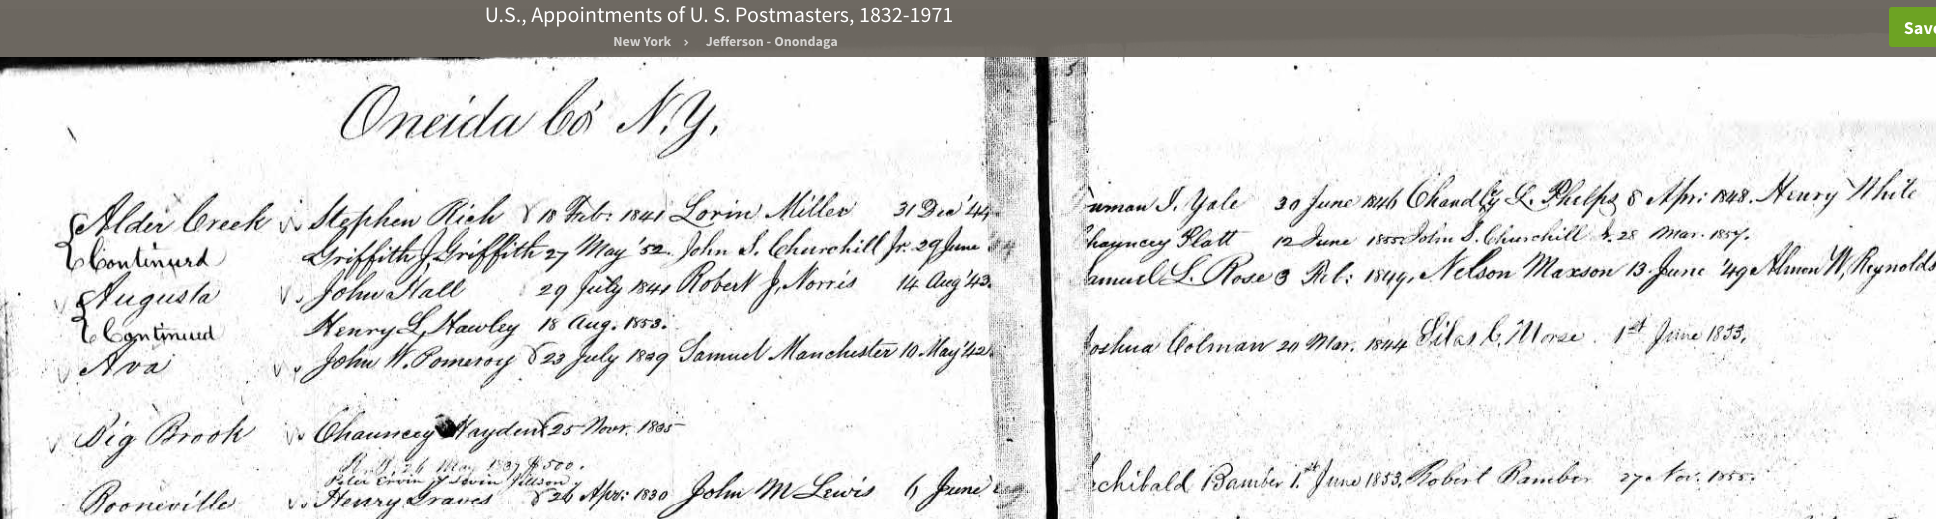 U.S., Appointments of U. S. Postmasters, 1832-1971
New York › Jefferson - Onondaga
Save
5
Oneida Co N.Y.
Alder Creek Stephen Rich 18 Feb: 1841 Lorin Miller 31 Dec '44 uman I. Yale 30 June 1846 L. Phelps 8 Apr: 1848. Henry White
Continued Griffith J. Griffith 27 May '52. John S. Churchill Jr. 29 June hauncey Platt 12 June 1855 John S. Churchill 28 Mar. 1857.
Augusta John Hall 29 July 1841 Robert J. Norris 14 Aug '43. amuel L. Rose 3 Feb: 1849. Nelson Maxson 13 June '49 Almon W. Reynolds
Continued Henry L. Hawley 18 Aug. 1853.
Ava John W. Pomeroy 23 July 1839 Samuel Manchester 10 May '42 oshua Colman 20 Mar. 1844 Silas C. Morse 1st June 1853.
Big Brook Chauncey Hayden 25 Novr. 1835
26 May 1837 $500.
Peter Ervin
Booneville Henry Graves 26 Apr: 1830 John M Lewis 6 June chibald Bamber 1st June 1853. Robert Bamber 27 Nov. 1855.